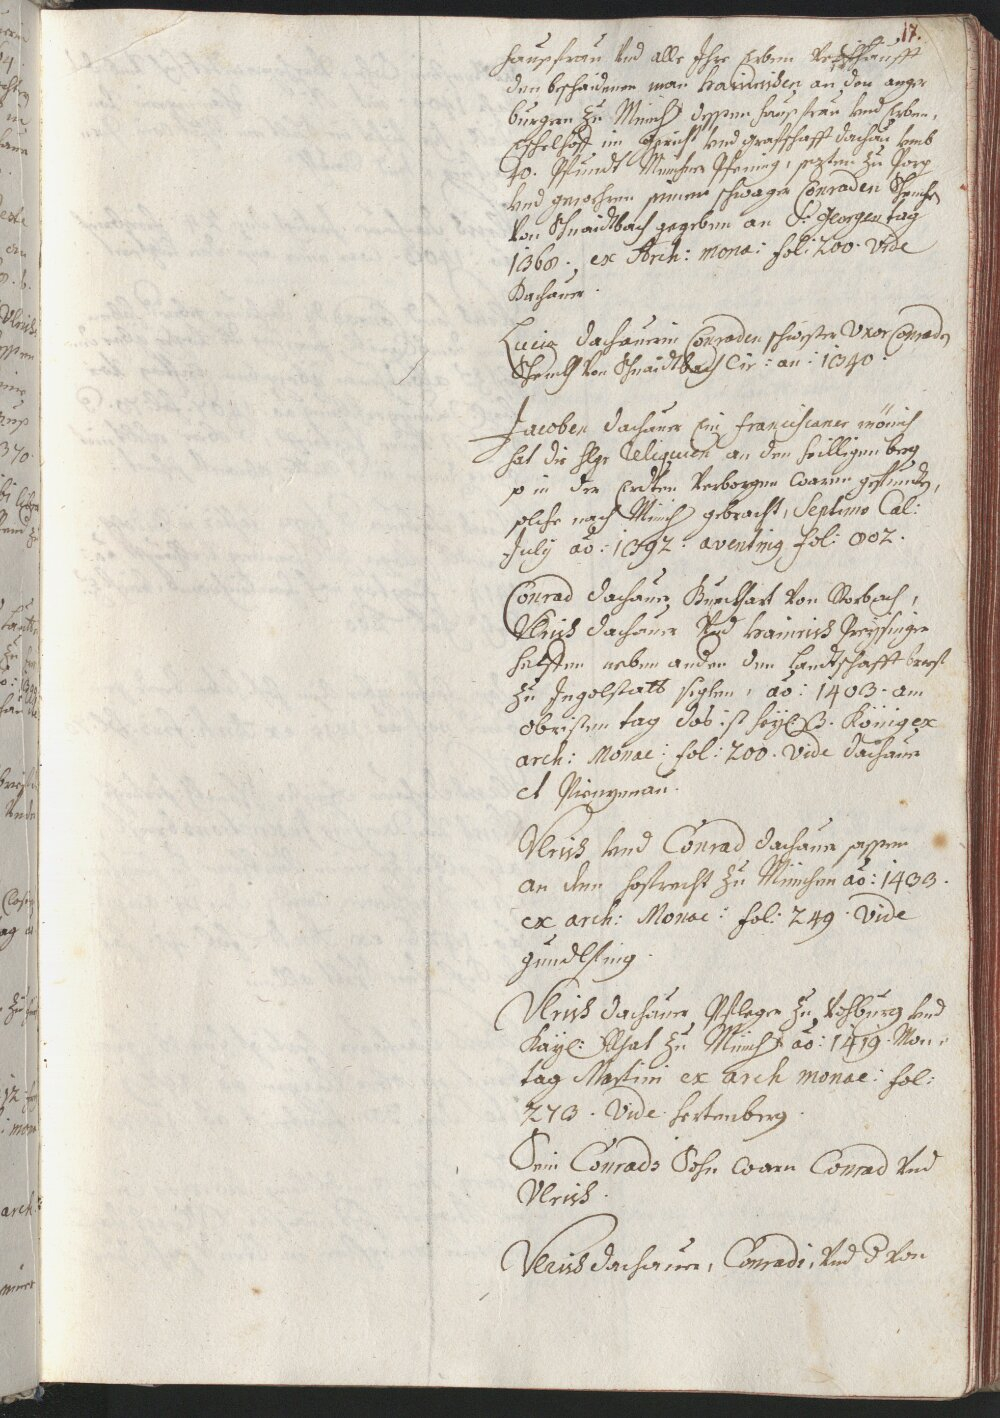 17.
hausfrau und alle Ihre Erben verkhaufft
den beschaidenen man Hainrichen an den anger
burgern zu Münch dessen hausfrau und Erben,
im gericht und grafschafft dachau umb
40. Pfundt Münchner Pfening, sezten zu
und gewehren seinen schwager Conraden
von Schnaidtbach gegeben an S: Georgen tag
1368. ex Arch: mona: fol: 200. Vide
Dachauer.
Lucia Dachauerin Conraden schwester Uxor Conraden
von Schnaidtbach Cir: an: 1340.
Jacober Dachauer ein Franciscaner münich
hat die hlge Reliquien an den heilligen berg
so in der Erdten verborgen waren gefunden,
solche nach Münch gebracht, Septimo Cal:
July ao: 1392. aventinus fol: 802.
Conrad Dachauer, Burckhart von Rorbach,
Ulrich Dachauer Und Hainrich Preysinger
helffen neben andern den Landtschafft brief
zu Ingolstatt siglen, ao: 1403. am
obristen tag das ist heyl: 3. König ex
arch: Monac: fol: 200. Vide Dachauer
et Pienzenau.
Ulrich und Conrad Dachauer sassen
an dem hofrecht zu München ao: 1433.
ex arch: Monac: fol: 249. Vide
gundlfing.
Ulrich Dachauer Pfleger zu Vohburg und
Kayl: Rhat zu Münch ao: 1419. Mon-
tag Martini ex arch monac: fol:
273. Vide hertenberg.
Sein Conrads Sohn warn Conrad Und
Ulrich.
Ulrich Dachauer, Conradi, Und von